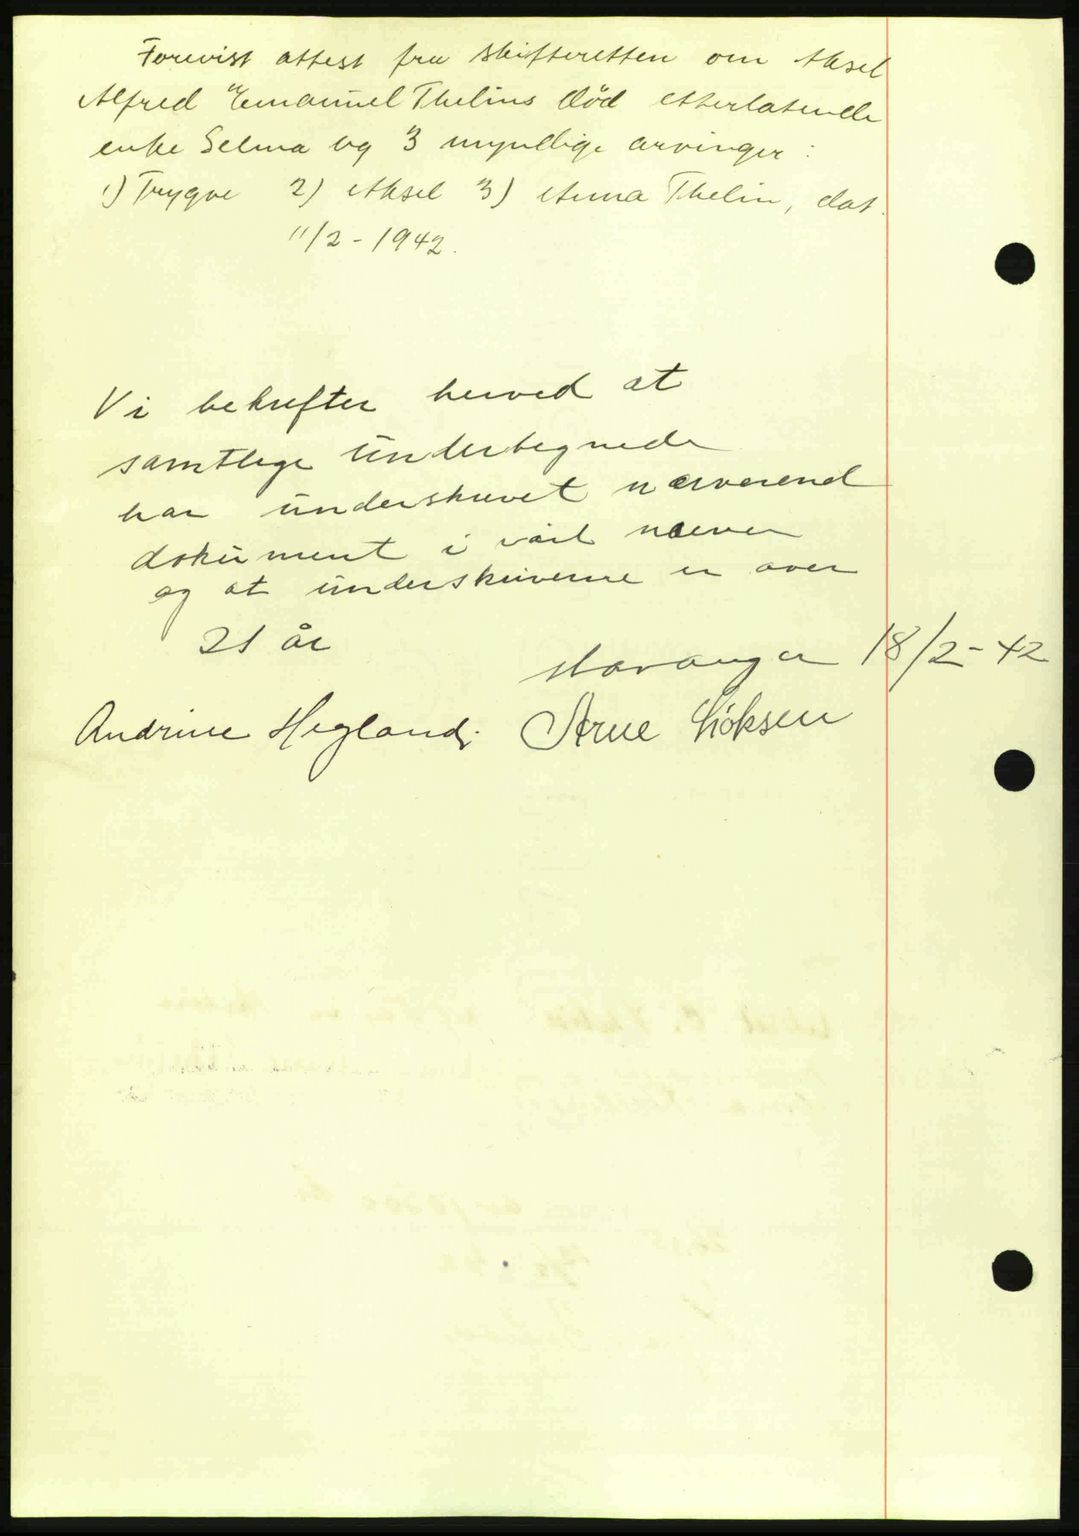 Forevist attest fra skifteretten om Aksel
Alfred Emanuel Thelins död etterlatende
enke Selma og 3 myndige arvinger :
1) Trygve 2) Aksel 3) Anna Thelin, dat.
11/2 - 1942.
Vi bekrefter herved at
samtlige undertegnede
har underskrevet nærverend
dokument i vårt nærver
og at underskriverne er over
21 år
Stavanger 18/2 - 42
Andrine Hegland. Arne